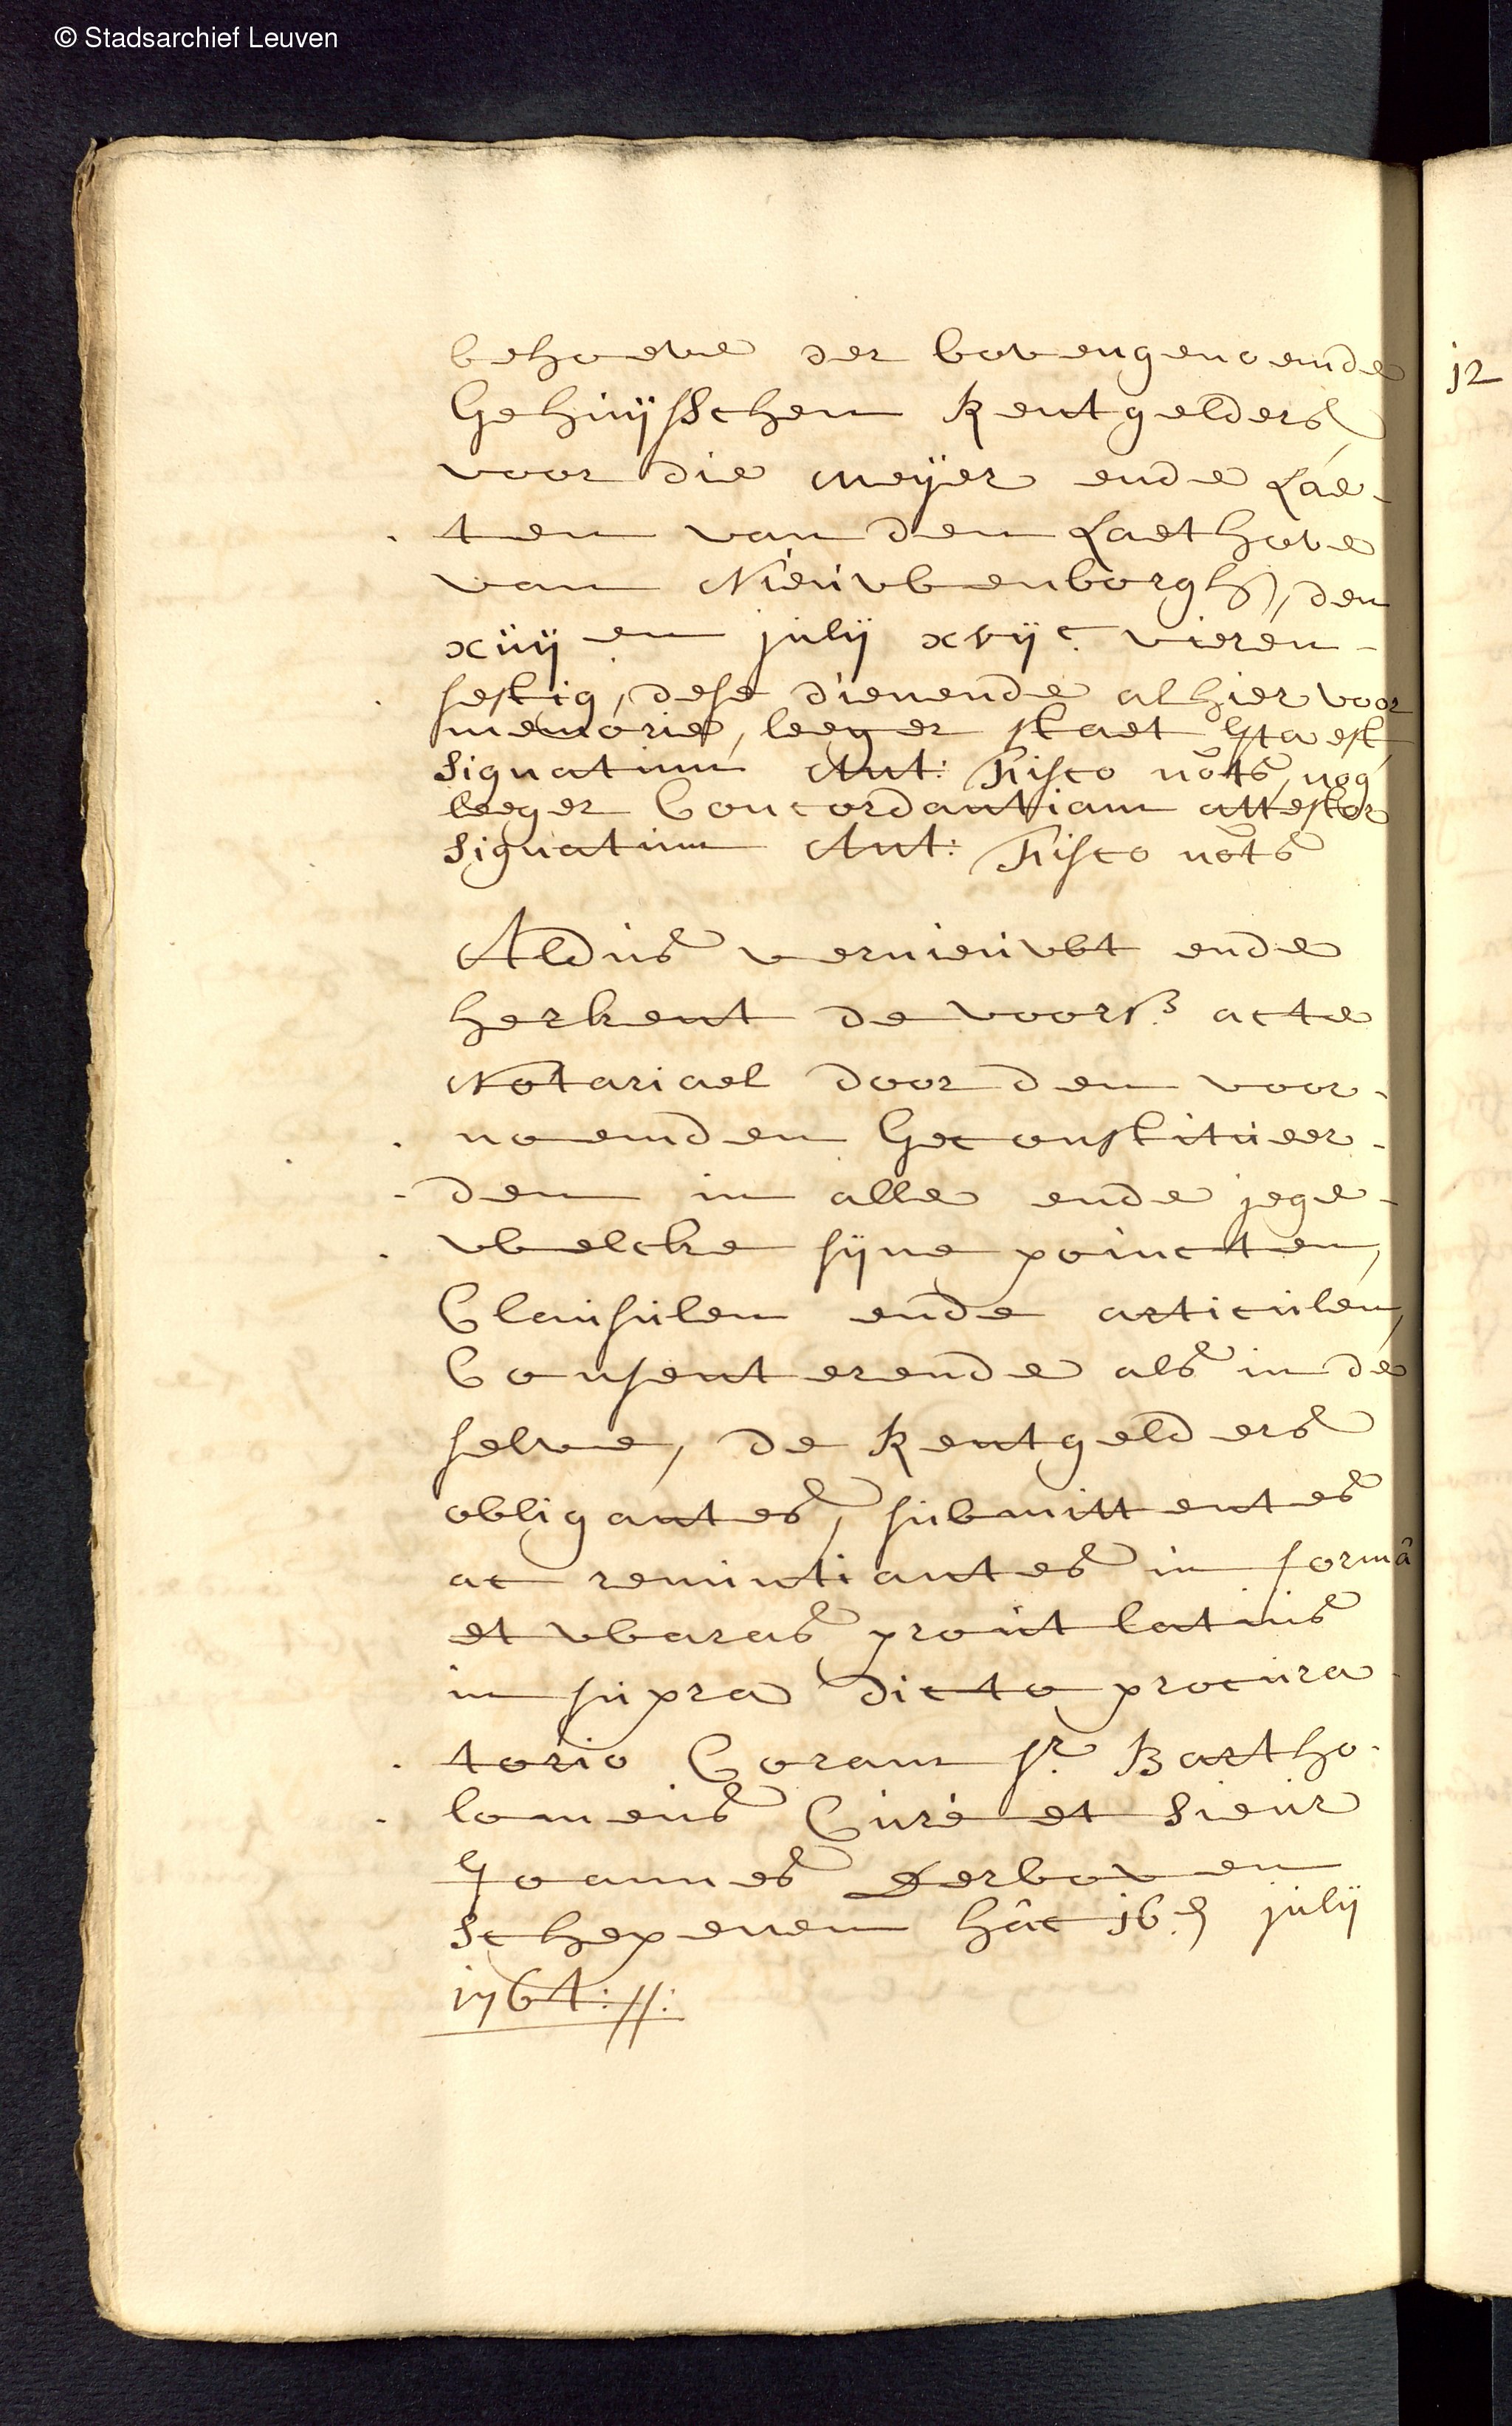 © Stadsarchief Leuven
behoeve der bovengenoemde
Gehuijsschen Rentgelders
voor die meijer ende Lae-
ten van den Laethove
van Nieuwenborgh, den
xiiij en julij xvijc vieren-
sestig, dese dienende alhier voor
memorie, leeger staet Ita est
Signatum Ant: Fisco nots, nog
leeger Concordantiam attestor
Signatum Ant: Fisco nots
Aldus vernieuwt ende
herkent de voors. acte
Notariael door den voor-
noemden Geconstitueer-
den in alle ende jege-
welcke sijne poincten,
Clausulen ende articulen,
Consenterende als in de
selve, de Rentgelders
obligantes, submittentes
ac renuntiantes in formâ
et waras prout latius
in supra dicto procura-
torio Coram sr. Bartho-
lomeus Curé et Sieur
Joannes Derboven
Schepenen hâc 16.e julij
1764://:
12